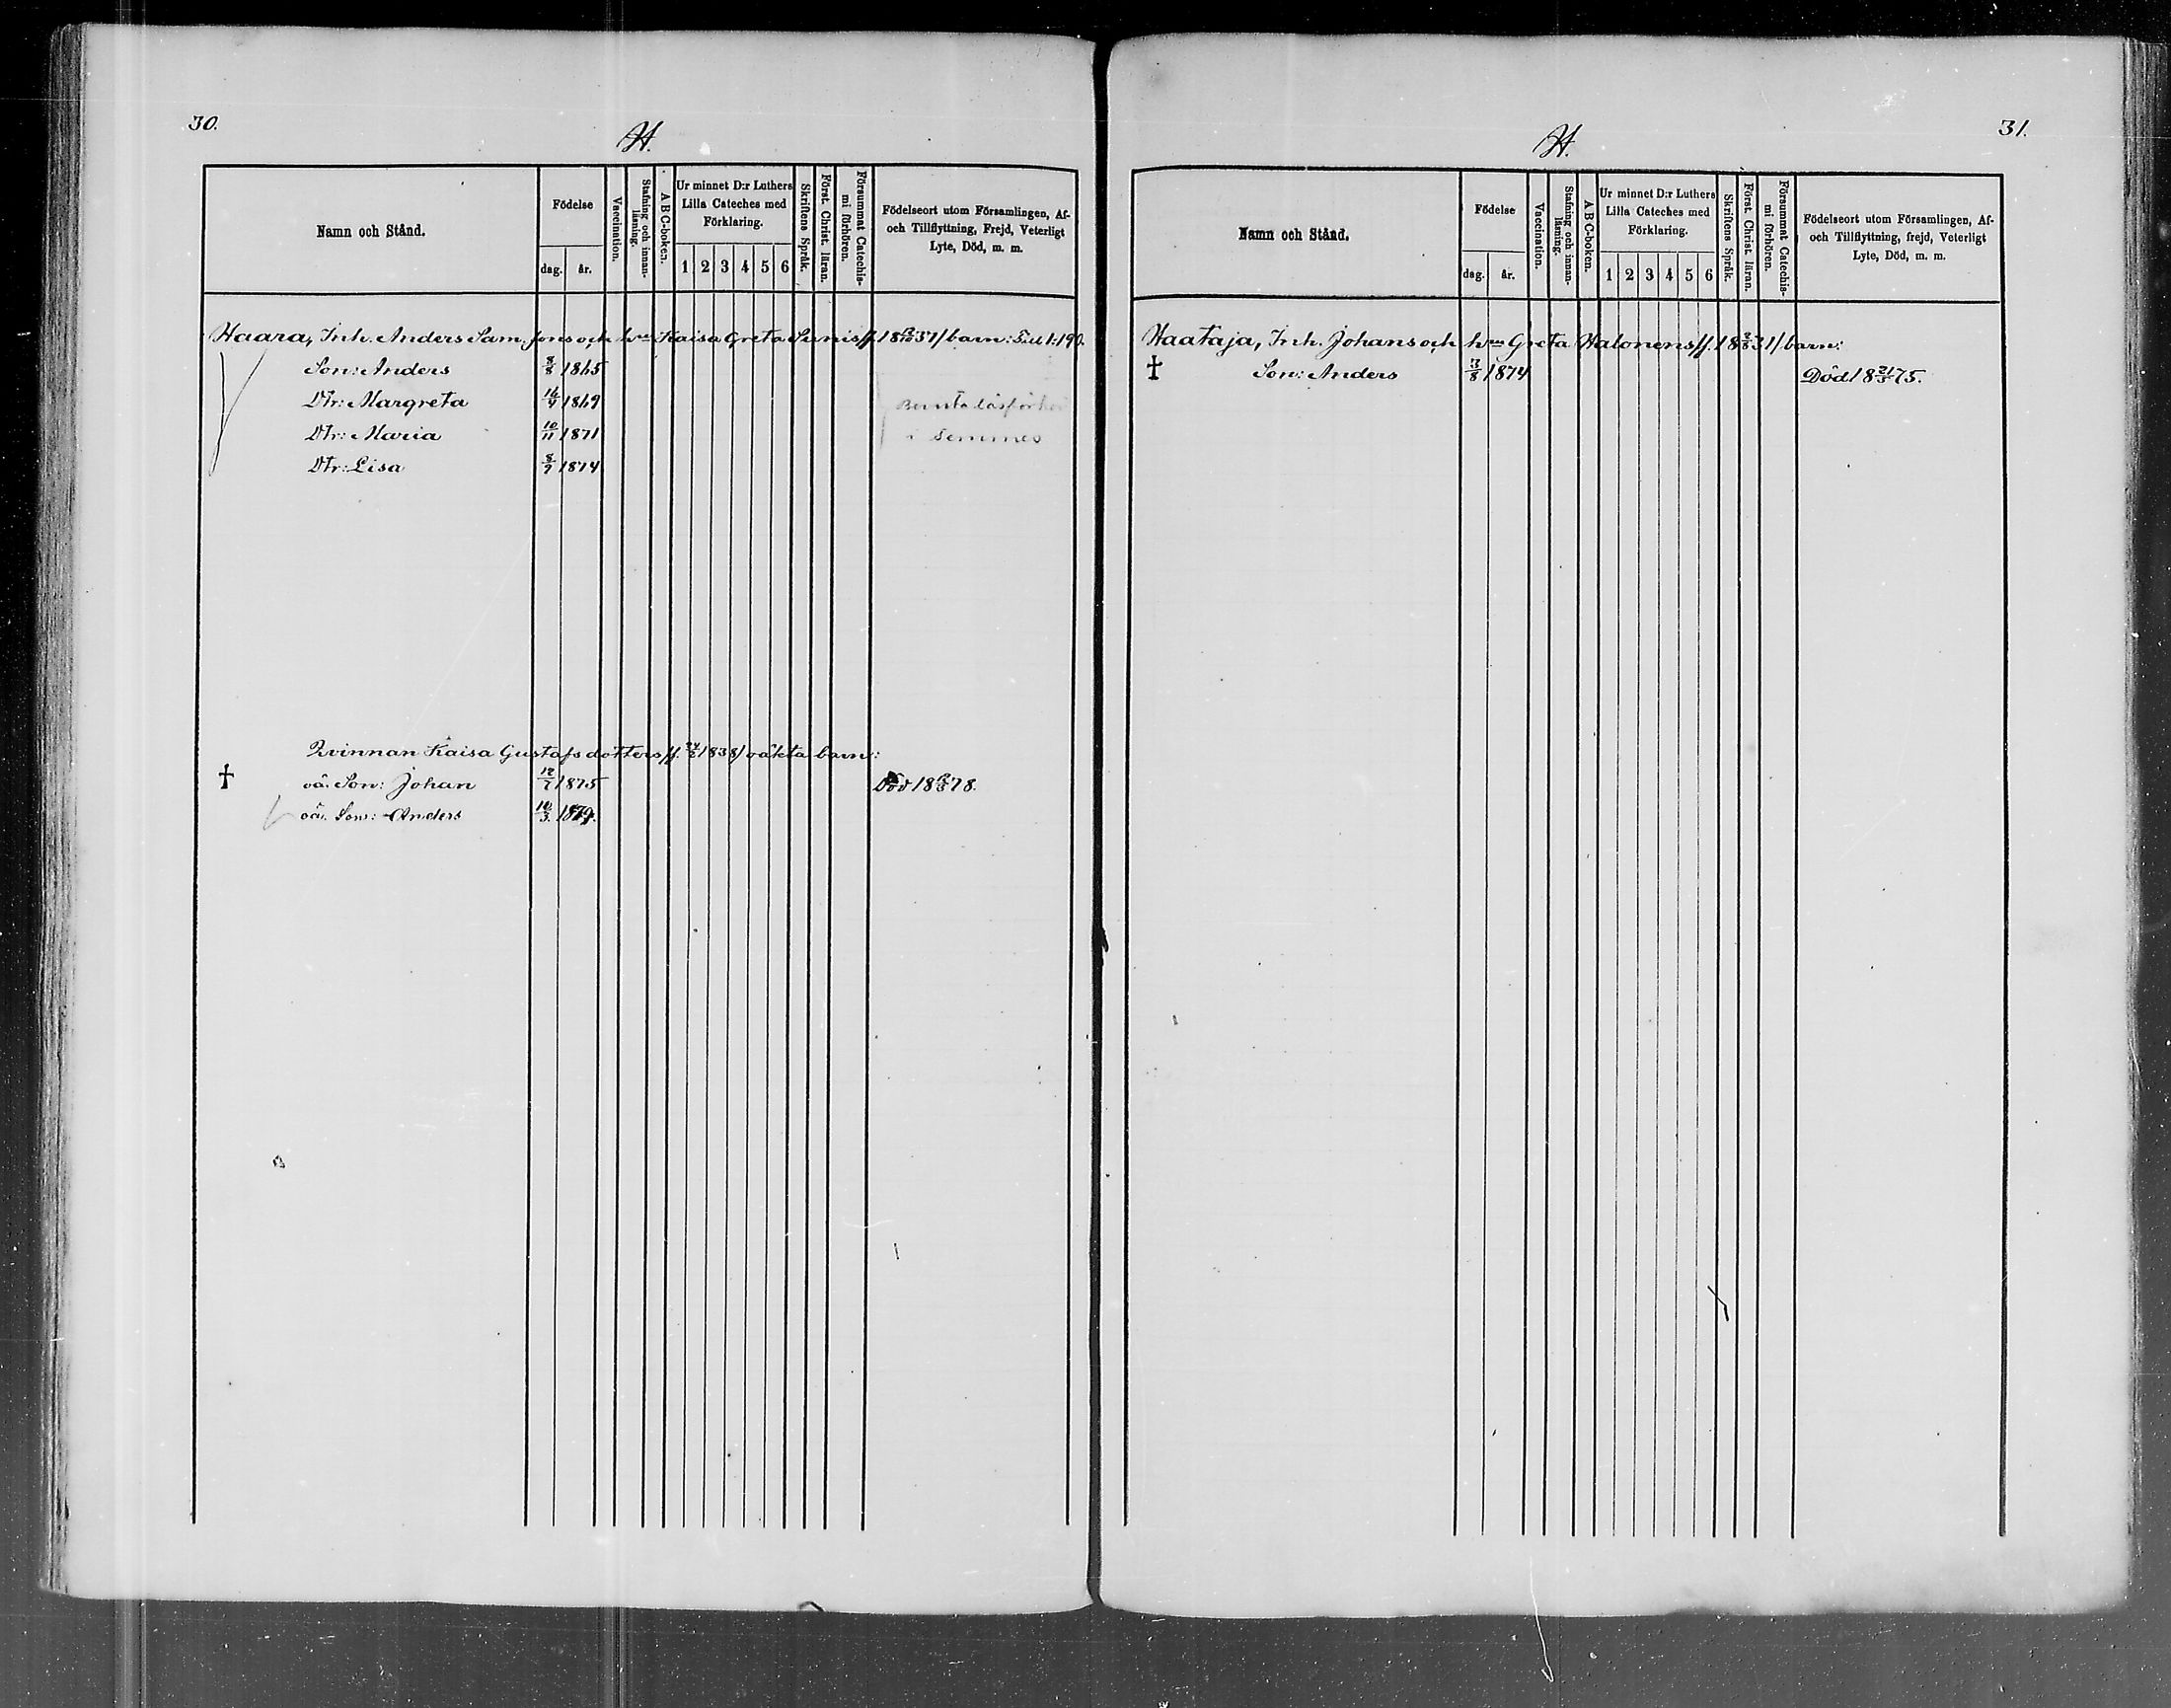 30.
H.
Namn och Stånd.
Födelse
dag.
år.
Vaccination.
Stafning och innan-
läsning.
A B C-boken.
Ur minnet D:r Luthers
Lilla Cateches med
Förklaring.
1 2 3 4 5 6
Skriftens Språk.
Först. Christ. läran.
Försummat Catechis-
mi förhören.
Födelseort utom Församlingen, Af-
och Tillflyttning, Frejd, Veterligt
Lyte, Död, m. m.
Haara, Inh. Anders Sam. Jons och h:us Kaisa Greta 18 31/ barn: 1:190.
Son: Anders 8/8 1865
Dtr: Margreta 16/9 1869
Dtr: Maria 10/11 1871
i Temmes
Dtr: Lisa 8/7 1874
Qvinnan Kaisa Gustafsdotters /f. 1838/ oäkta barn:
† oä. Son: Johan 12/7 1875 Död 18 78.
oä. Son: Anders 10/3 1879.
31.
H.
Namn och Stånd.
Födelse
dag.
år.
Vaccination.
Stafning och innan-
läsning.
A B C-boken.
Ur minnet D:r Luthers
Lilla Cateches med
Förklaring.
1 2 3 4 5 6
Skriftens Språk.
Först. Christ. läran.
Försummat Catechis-
mi förhören.
Födelseort utom Församlingen, Af-
och Tillflyttning, frejd, Veterligt
Lyte, Död, m. m.
Haataja, Inh. Johans och h:us Greta Halonens /f. 18 31/ barn:
† Son: Anders 3/8 1874 Död 18 21/5 75.